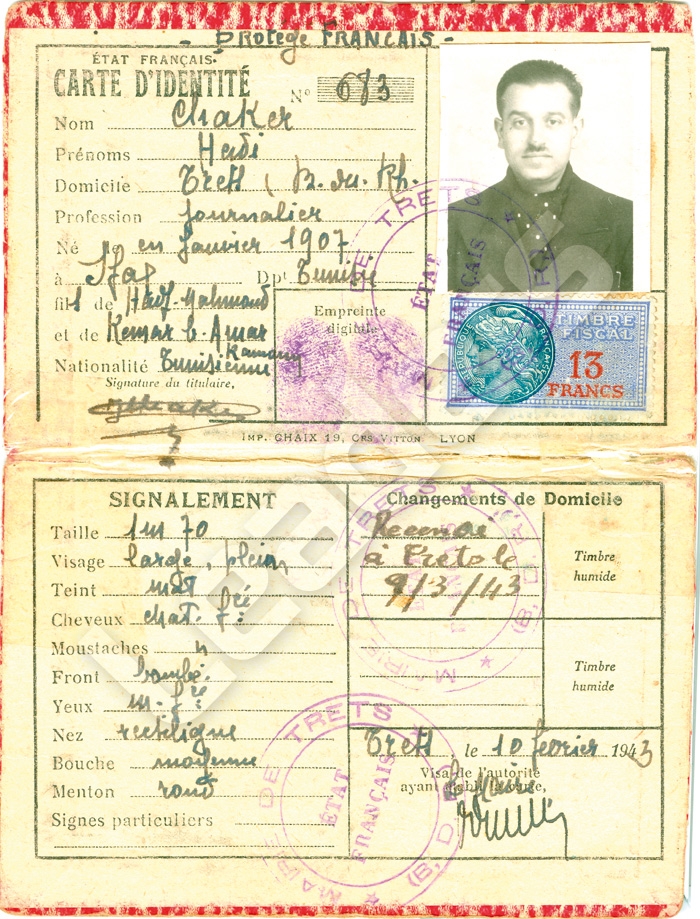 - Protégé FRANCAIS -
ÉTAT FRANÇAIS
CARTE D'IDENTITÉ
N° 673
Nom Chaker
Prénoms Hédi
Domicile Trets (B. du Rh.
Profession Journalier
Né en Janvier 1907
à Sfax Dpt Tunisie
fils de Hadj-Mahmoud
et de Kemar b. Amar
Kamoun
Nationalité Tunisienne
Signature du titulaire,
Empreinte
digitale
MAIRIE DE TRETS
ÉTAT
FRANÇAIS
RÉPUBLIQUE FRANÇAISE
TIMBRE
FISCAL
13
FRANCS
IMP. CHAIX 19, CRS VITTON LYON
SIGNALEMENT
Taille 1m70
Visage large, plein
Teint mat
Cheveux chat. fcé
Moustaches
Front bombé
Yeux m. fcé
Nez rectiligne
Bouche moyenne
Menton rond
Signes particuliers
Changements de Domicile
à Trets le
9/3/43
Timbre
humide
Timbre
humide
MAIRIE DE TRETS
(B. D. R.)
Trets le 10 février 1943
Visa de l'autorité
ayant établi la carte,
Le Maire
MAIRIE DE TRETS
ÉTAT
FRANÇAIS
(B. D. R.)
Leaders